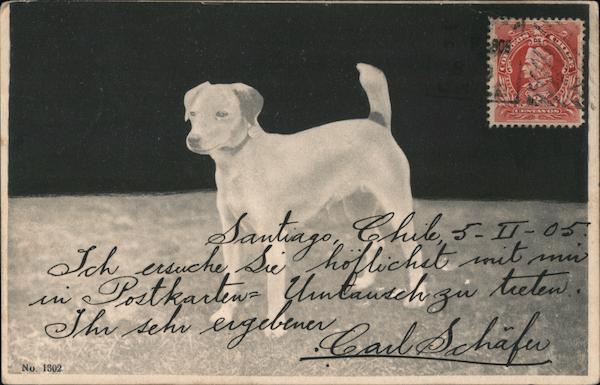 CORREOS CHILE
CENTAVOS
Santiago, Chile, 5-II-05.
Ich ersuche Sie höflichst mit mir
in Postkarten= Umtausch zu treten.
Ihr sehr ergebener
Carl Schäfer
No. 1302